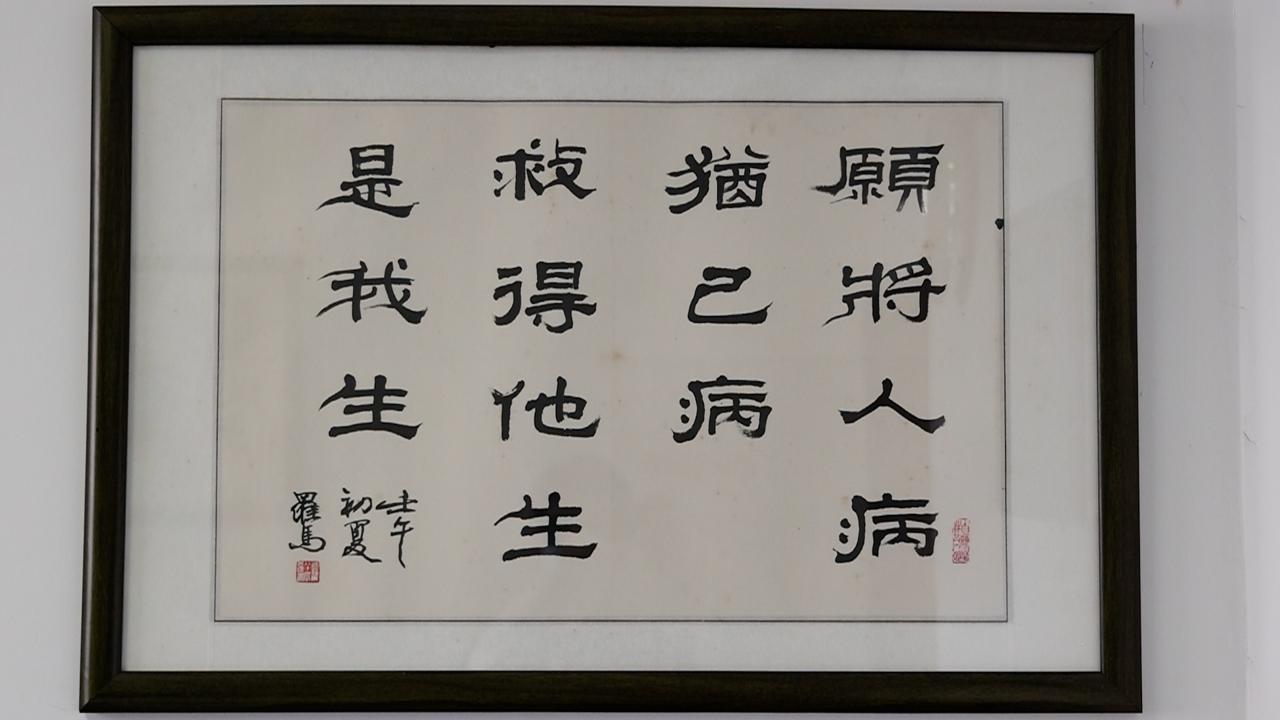 願將人病
猶己病
救得他生
是我生
壬午
初夏
羅馬